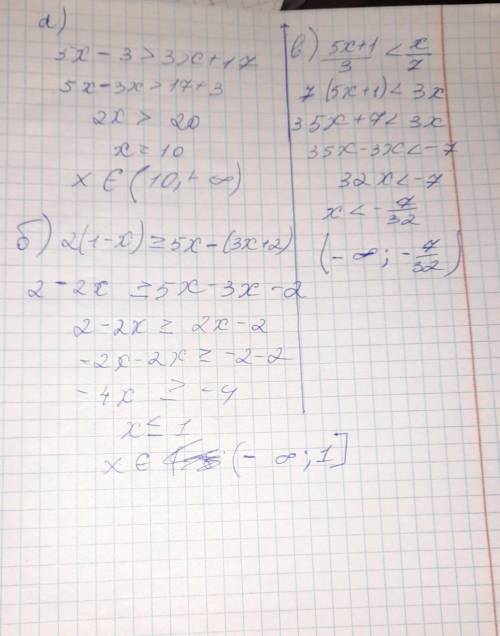 а)
5x - 3 > 3x + 17
5x - 3x > 17 + 3
2x > 20
x = 10
x ∈ (10, + ∞)
б) 2(1-x) ≥ 5x - (3x+2)
2 - 2x ≥ 5x - 3x - 2
2 - 2x ≥ 2x - 2
-2x - 2x ≥ -2 - 2
-4x ≥ -4
x ≤ 1
x ∈ (- ∞; 1]
в) \frac{5x+1}{3} < \frac{x}{7}
7(5x+1) < 3x
35x + 7 < 3x
35x - 3x < -7
32x < -7
x < -\frac{7}{32}
(- ∞; -\frac{7}{32})